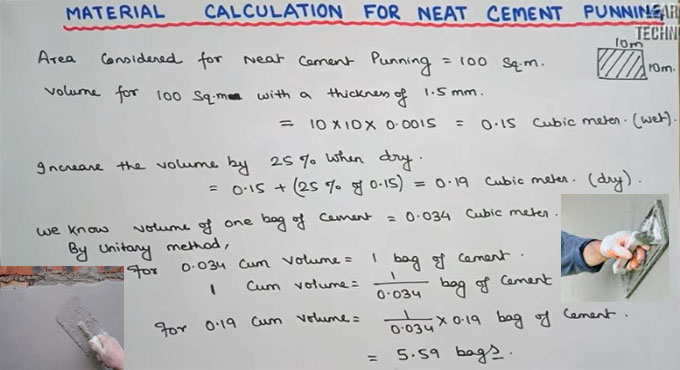 MATERIAL CALCULATION FOR NEAT CEMENT PUNNING
TECHN
10m
10m.
Area Considered for Neat Cement Punning = 100 Sq.m.
Volume for 100 Sq.m with a thickness of 1.5 mm.
= 10 x 10 x 0.0015 = 0.15 Cubic meter. (wet).
Increase the volume by 25 % when dry.
= 0.15 + (25 % of 0.15) = 0.19 Cubic meter. (dry).
We know volume of one bag of Cement = 0.034 Cubic meter.
By Unitary method,
For 0.034 Cum volume = 1 bag of Cement.
1 Cum volume = 1/0.034 bag of Cement
For 0.19 Cum volume = 1/0.034 x 0.19 bag of Cement.
= 5.59 bags.